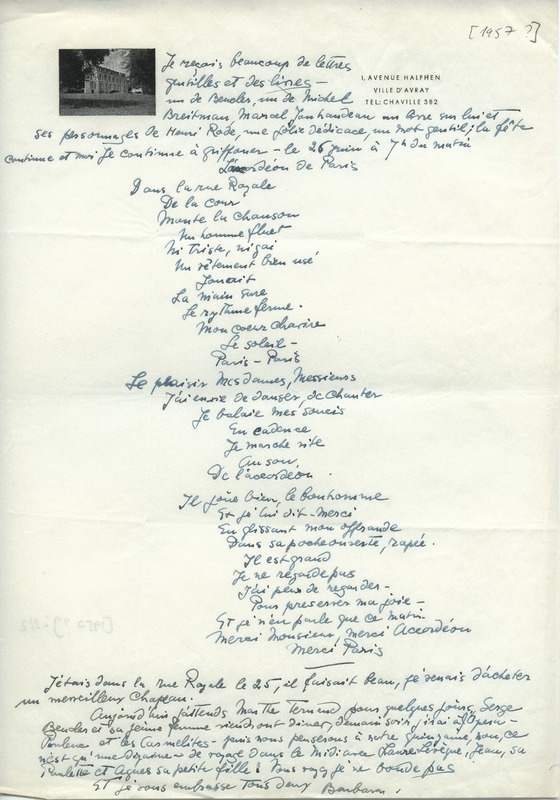 [1957 ?]
Je reçois beaucoup de lettres
gentilles et des livres –
un de Beucler, un de Michel
Breitman, Marcel Jouhandeau un livre sur lui et
1, AVENUE HALPHEN
VILLE D'AVRAY
TEL: CHAVILLE 382
ses personnages de Henri Rode, une jolie dédicace, un mot gentil; la fête
continue et moi je continue à griffonner – le 26 juin à 7h du matin
L'accordéon de Paris
Dans la rue Royale
De la cour
Monte la chanson
Un homme fluet
Ni triste, ni gai
Un vêtement bien usé
Jouait
La main sure
Le rythme ferme.
Mon coeur chavire
Le soleil –
Paris – Paris
Le plaisir Mesdames, Messieurs
J'ai envie de danser, de chanter
Je balaie mes soucis
En cadence
Je marche vite
Au son
De l'accordéon.
Il joue bien, le bonhomme
Et je lui dit – Merci
En glissant mon offrande
Dans sa poche ouverte, rapée.
Il est grand
Je ne regarde pas
J'ai peur de regarder –
Pour preserver ma joie –
Et je n'en parle que ce matin.
Merci Monsieur, merci Accordéon
Merci Paris
J'étais dans la rue Royale le 25, il faisait beau, je venais d'acheter
un merveilleux chapeau.
Aujourd'hui j'attends Marthe pour quelques jours, Serge
Beucler et sa jeune femme viendront diner, demain soir, j'irai à l'Opera –
Poulenc et les Carmelites – puis nous penserons à notre
n'est qu'une – de voyage dans le midi avec Jean, sa
Paulette et Agnes sa petite fille! Vous voyez je ne boude pas
Et je vous embrasse tous deux Barbara.